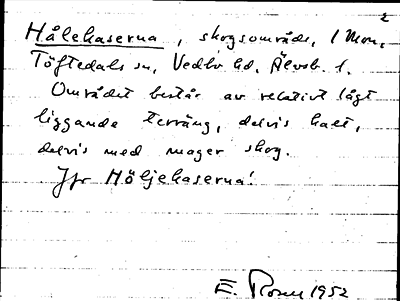 2
Hålekaserna, skogsområde, 1 Mon,
Töftedals sn, Vedbo hd, Älvsb. l.
Området består av relativt lågt
liggande terräng, delvis kalt,
delvis med mager skog.
Jfr Höljekaserna!
E. 1952